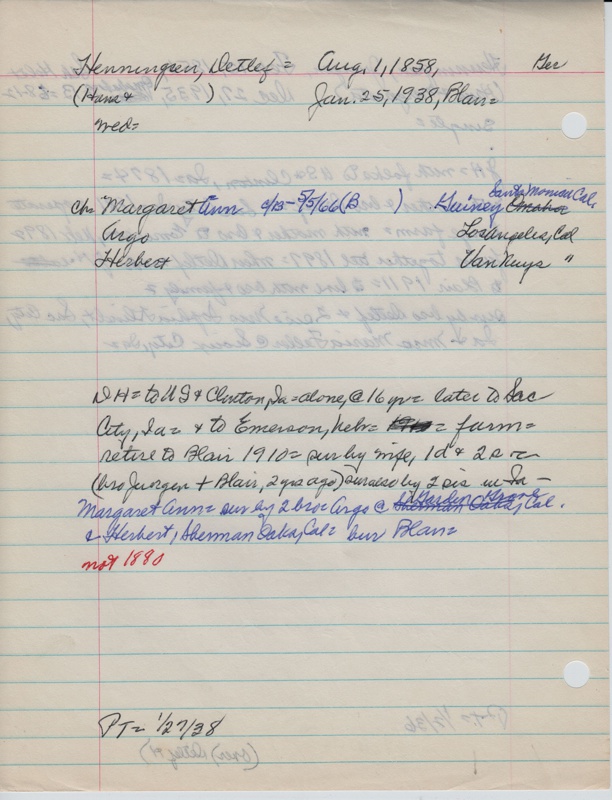 Henningsen, Detlef = Aug. 1, 1858, Ger
(Hans & ) Jan. 25, 1938, Blair =
wed =
Santa Monica Cal.
chn Margaret Ann c/B - 5/5/66 (B ) Guiney Omaha
Argo Los Angeles, Cal
Herbert Van Nuys "
DH = to US & Clinton, Ia = alone, @ 16 yr = later to Sac
City, Ia = & to Emerson, Nebr = = farm =
retire to Blair 1910 = sur by wife, 1 d & 2 s =
(bro Juergen + Blair, 2 yrs ago) sur also by 2 sis in Ia -
Margaret Ann = sur by 2 bro = Argo @ Garden Grove Sherman Oaks, Cal.
& Herbert, Sherman Oaks, Cal = bur Blair =
not 1880
PT = 1/27/38